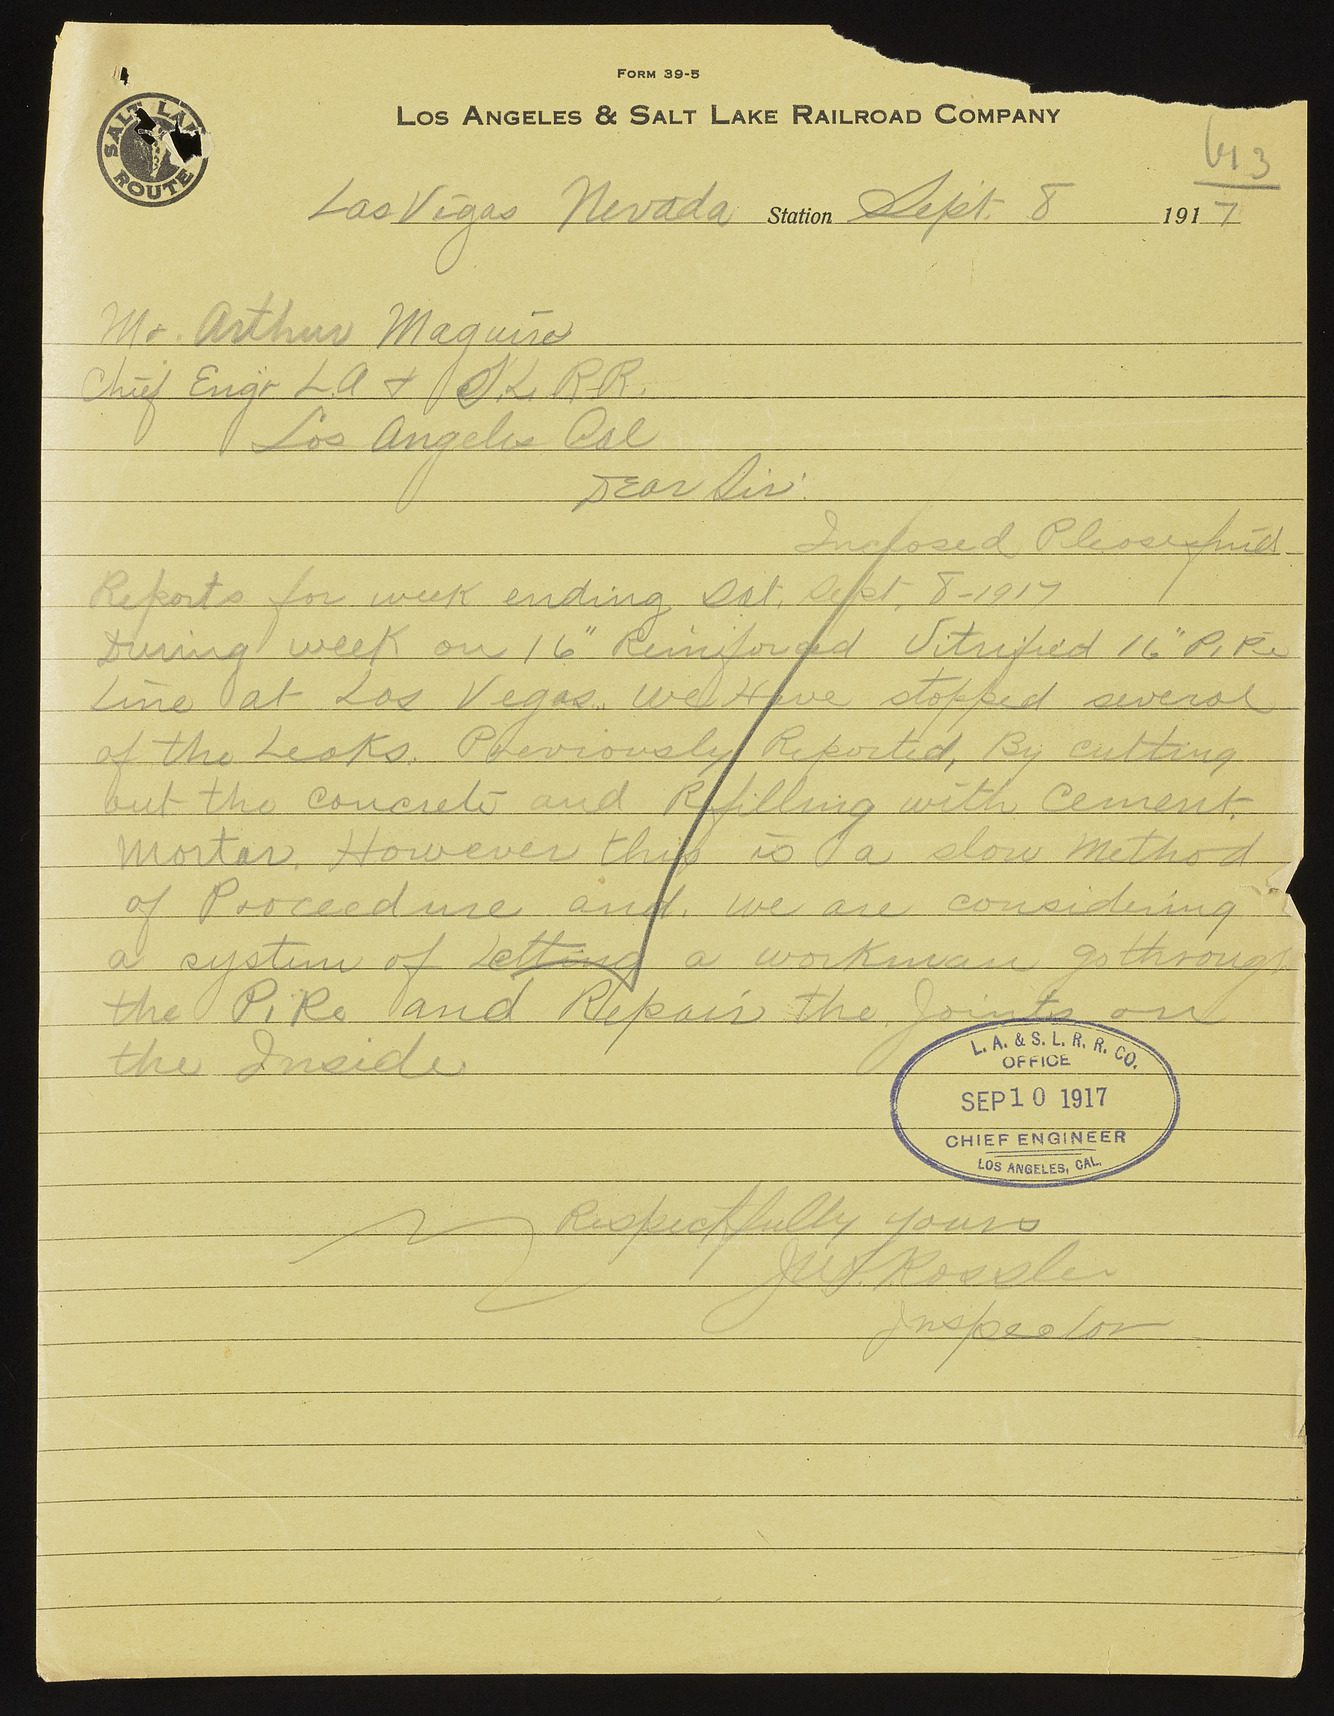 FORM 39-5
LOS ANGELES & SALT LAKE RAILROAD COMPANY
SALT LAKE ROUTE
613
Las Vegas Nevada Station Sept. 8 1917
Mr. Arthur Maguire
Chief Engr L.A & S.L. R.R.
Los Angeles Cal
Dear Sir:
Inclosed Please find
Reports for week ending Sat. Sept. 8-1917
During week on 16" Reinforced Vitrified 16" Pipe
Line at Las Vegas. We Have stopped several
of the Leaks. Previously Reported, By cutting
out the concrete and Refilling with Cement.
Mortar. However this is a slow Method
of Proceedure and. we are considering
a system of Letting a workman go through
the Pipe and Repair the Joints on
the Inside
L. A. & S. L. R. R. CO.
OFFICE
SEP 10 1917
CHIEF ENGINEER
LOS ANGELES, CAL.
Respectfully yours
Rossler
Inspector